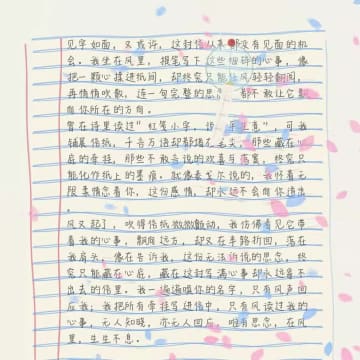 见字如面，又或许，这封信从来都没有见面的机
会。我坐在风里，提笔写下这些细碎的心事，像
把一颗心揉进纸间，却终究只能让风轻轻翻阅，
再悄悄吹散，连一句完整的思念，都不敢让它飘
向你所在的方向。
曾在诗里读过"红笺小字，说 平生意"，可我
铺展信纸，千言万语却都堵在笔尖，那些藏在心
底的牵挂，那些不敢言说的欢喜与落寞，终究只
能化作纸上的墨痕。就像泰戈尔说的，我怀着无
限柔情念着你，这份感情，却永远不会向你道出
。
风又起了，吹得信纸微微颤动，我仿佛看见它带
着我的心事，飘向远方，却又在半路折回，落在
我肩头，像在告诉我，这份无法诉说的思念，终
究只能藏在心底，藏在这封写满心事却永远寄不
出去的信里。我一遍遍唤你的名字，只有风声回
应我；我把所有牵挂写进信中，只有风读过我的
心事，无人知晓，亦无人回应，唯有思念，在风
里，生生不息。